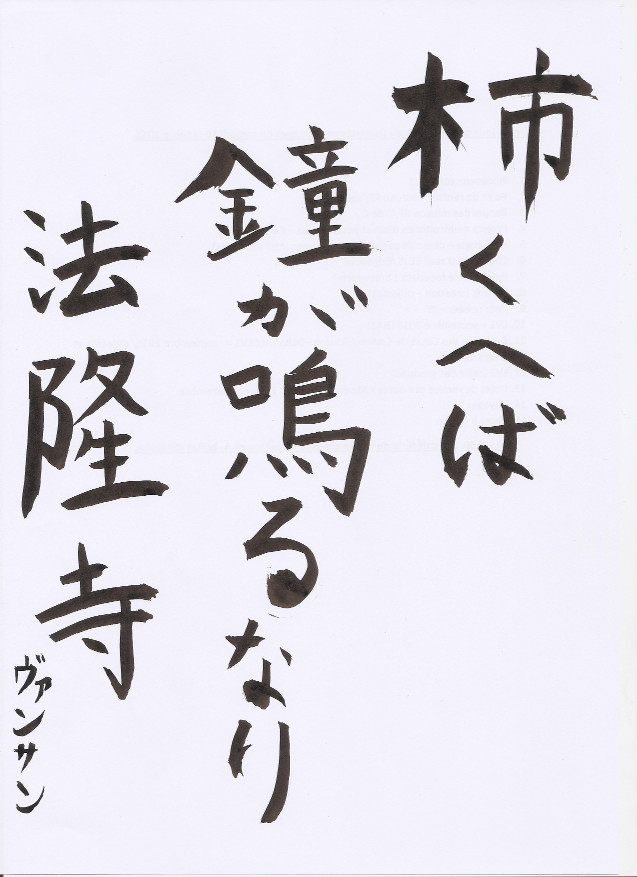 柿くへば
鐘が鳴るなり
法隆寺
ヴァンサン